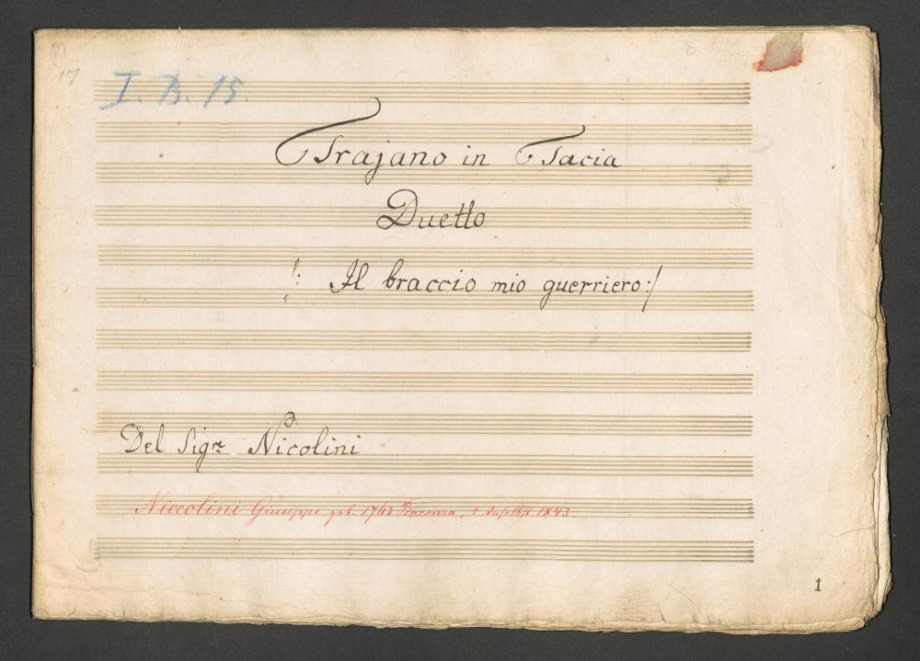 17
I. B. 15.
Trajano in Tacia
Duetto
/: Il braccio mio guerriero :/
Del Sigre Nicolini
Niccolini Giuseppe geb. 1763 Piacenza, 1843
1